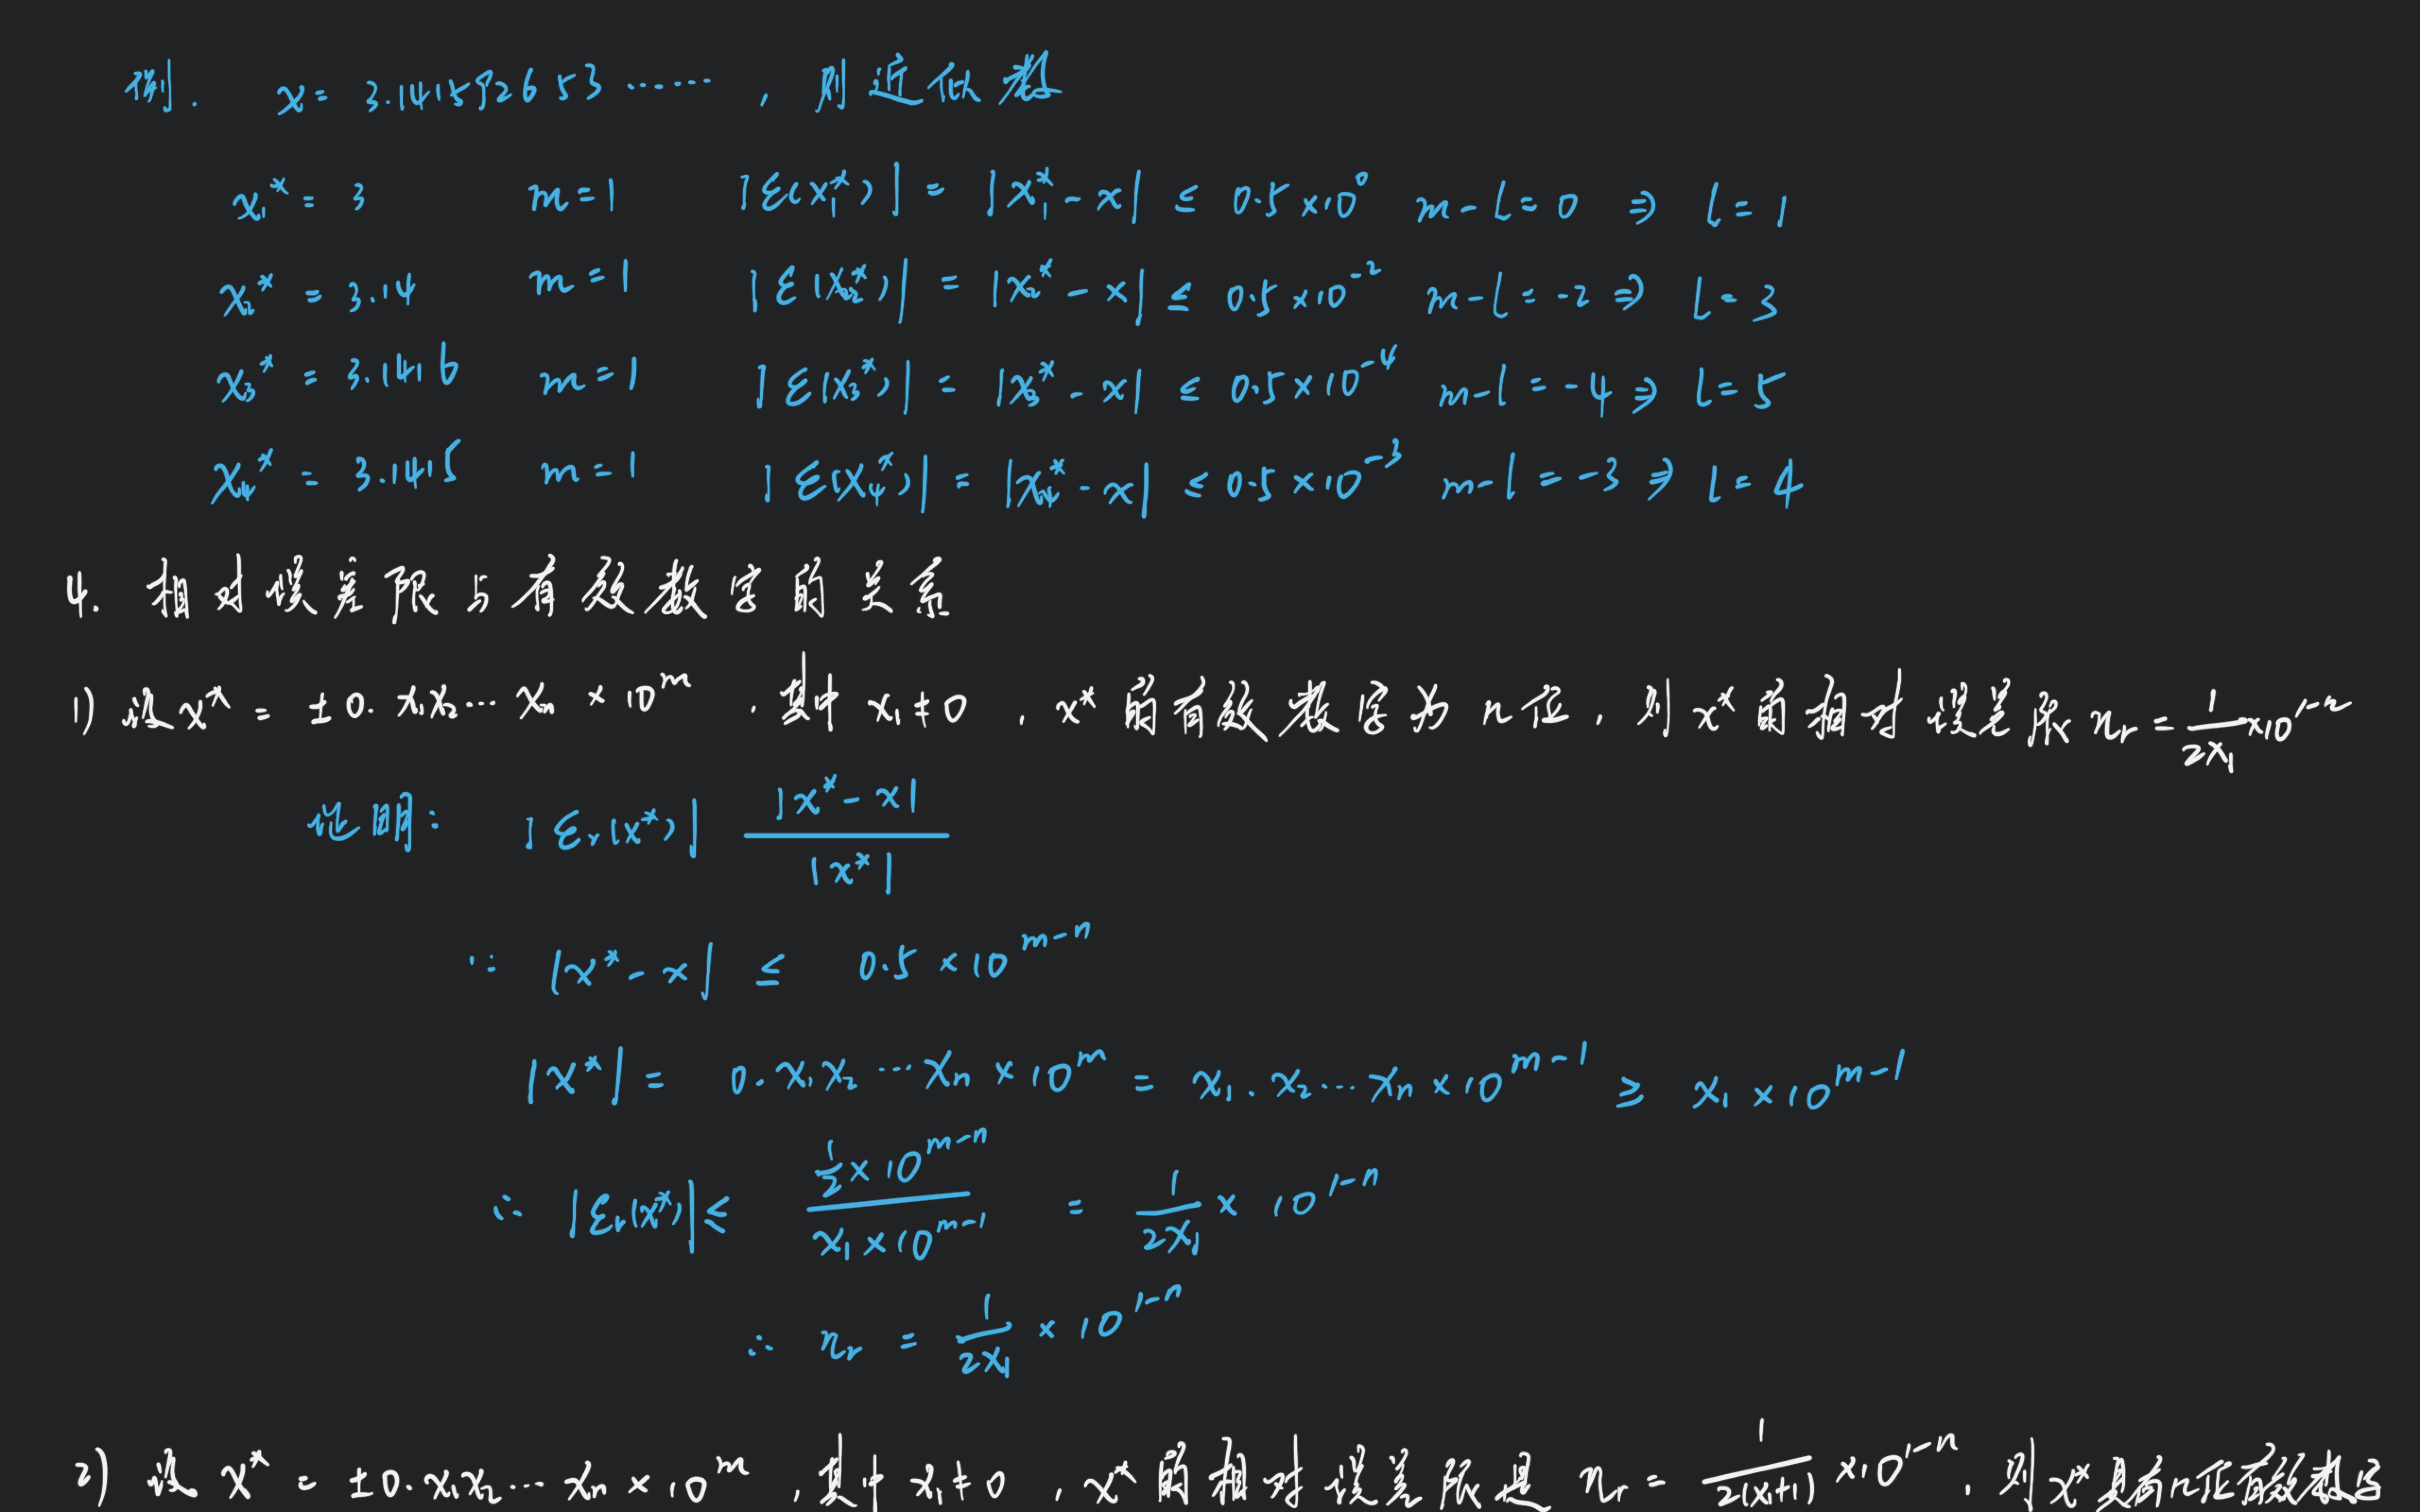 例. x = 3.141592653 ······ , 则近似数
x₁* = 3 m=1 |ε(x₁*)| = |x₁* - x| ≤ 0.5×10⁰ m-l=0 ⇒ l=1
x₂* = 3.14 m=1 |ε(x₂*)| = |x₂* - x| ≤ 0.5×10⁻² m-l=-2 ⇒ l=3
x₃* = 3.1416 m=1 |ε(x₃*)| = |x₃* - x| ≤ 0.5×10⁻⁴ m-l=-4 ⇒ l=5
x₄* = 3.1415 m=1 |ε(x₄*)| = |x₄* - x| ≤ 0.5×10⁻³ m-l=-3 ⇒ l=4
4. 相对误差限与有效数字的关系
1) 设 x* = ±0.x₁x₂···xₙ × 10^m , 其中 x₁≠0 , x* 的有效数字为 n 位, 则 x* 的相对误差限 ηᵣ = 1/(2x₁) ×10^(1-n)
证明: |εᵣ(x*)| |x* - x| / |x*|
∵ |x* - x| ≤ 0.5 × 10^(m-n)
|x*| = 0.x₁x₂···xₙ × 10^m = x₁.x₂···xₙ × 10^(m-1) ≥ x₁ × 10^(m-1)
∴ |εᵣ(x*)| ≤ (1/2 × 10^(m-n)) / (x₁ × 10^(m-1)) = 1/(2x₁) × 10^(1-n)
∴ ηᵣ = 1/(2x₁) × 10^(1-n)
2) 设 x* = ±0.x₁x₂···xₙ × 10^m , 其中 x₁≠0 , x* 的相对误差限是 ηᵣ = 1/(2(x₁+1)) ×10^(1-n) , 则 x* 具有 n 位有效数字